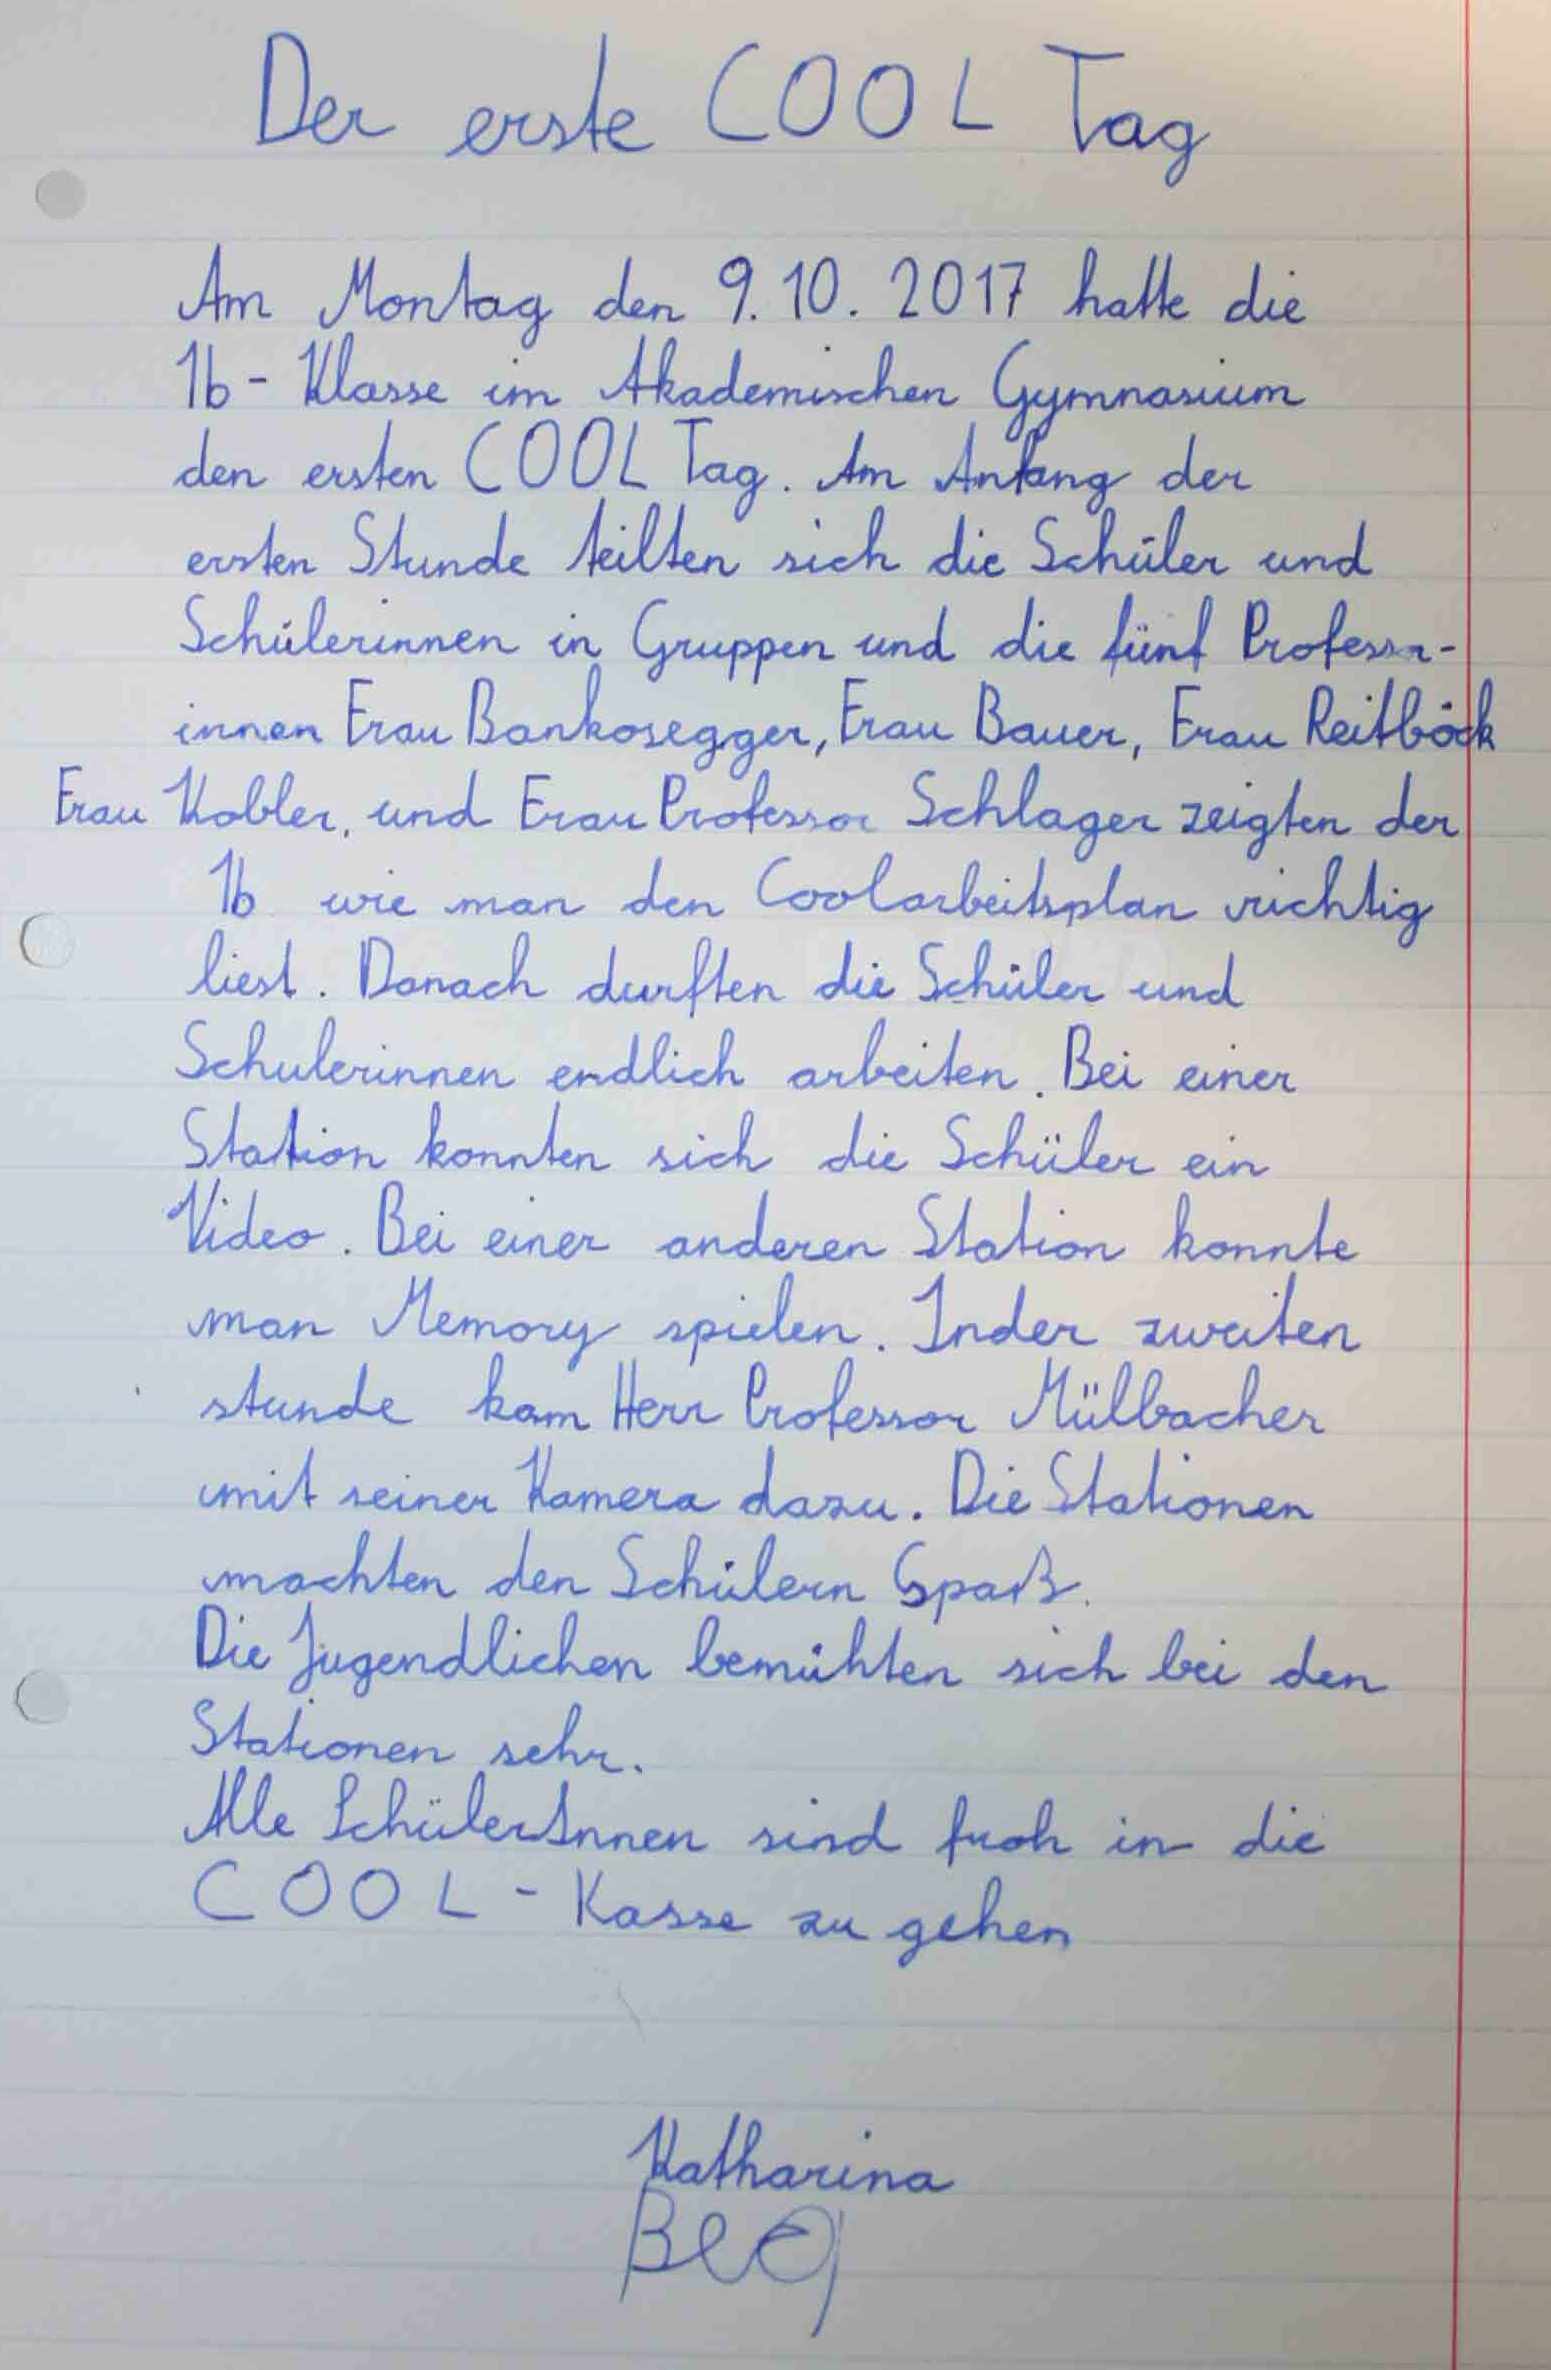 Der erste COOL Tag
Am Montag den 9.10.2017 hatte die
1b-Klasse im Akademischen Gymnasium
den ersten COOL Tag. Am Anfang der
ersten Stunde teilten sich die Schüler und
Schülerinnen in Gruppen und die fünf Professor-
innen Frau Bankosegger, Frau Bauer, Frau Reitböck
Frau Kobler, und Frau Professor Schlager zeigten der
1b wie man den Coolarbeitsplan richtig
liest. Danach durften die Schüler und
Schulerinnen endlich arbeiten. Bei einer
Station konnten sich die Schüler ein
Video. Bei einer anderen Station konnte
man Memory spielen. Inder zweiten
stunde kam Herr Professor Mülbacher
mit seiner Kamera dazu. Die Stationen
machten den Schülern Spaß.
Die Jugendlichen bemühten sich bei den
Stationen sehr.
Alle SchülerInnen sind froh in die
COOL-Kasse zu gehen
Katharina